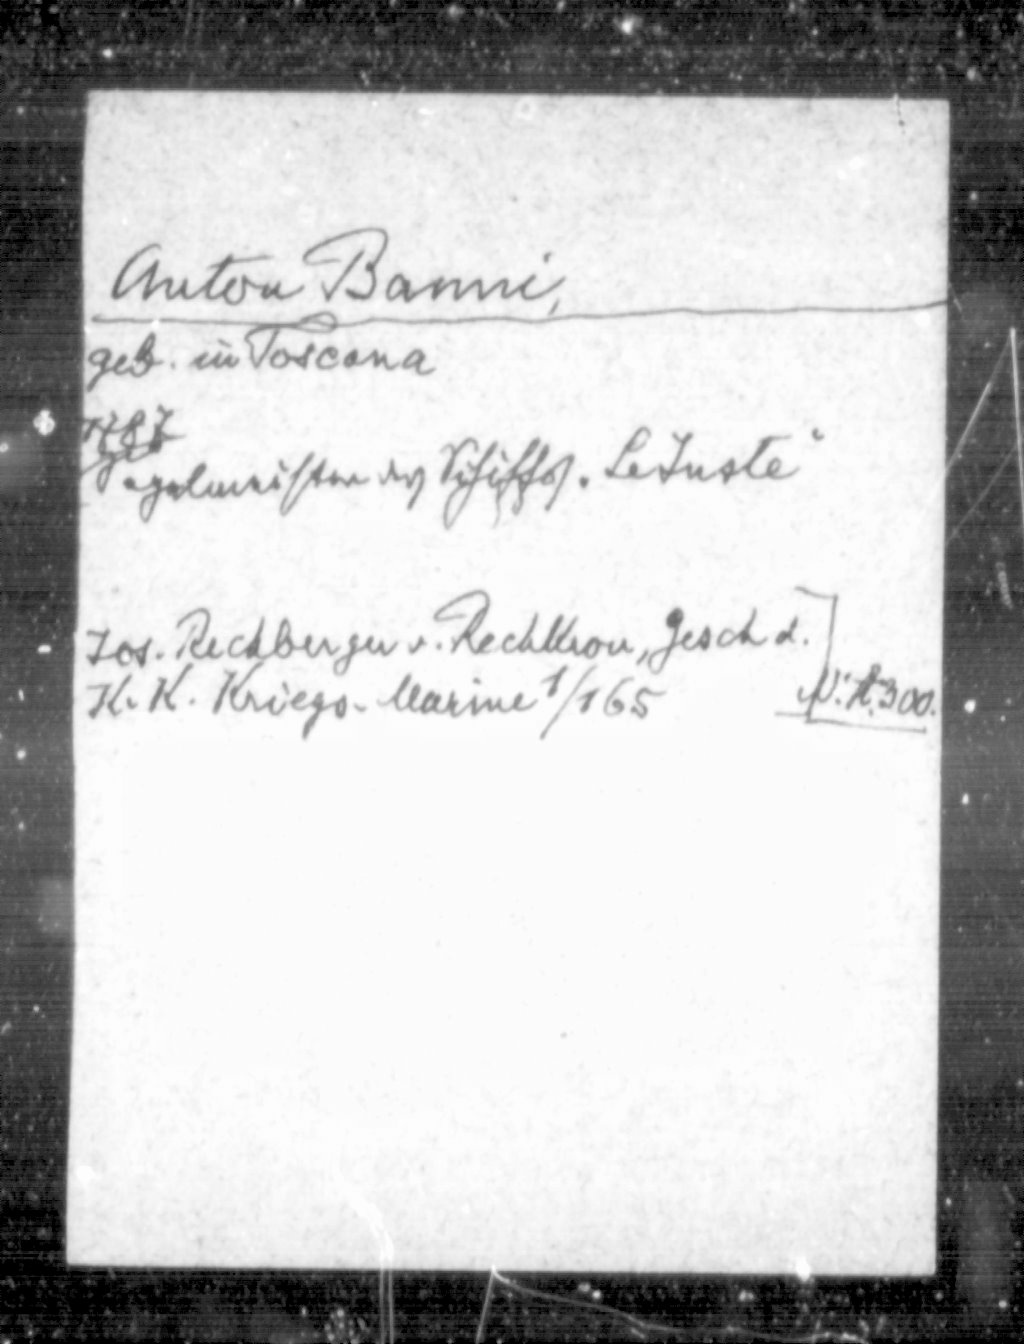 Anton Banni,
geb. in Toscana
1787
Segelmeister des Schiffes "Le Juste"
Jos. Rechberger v. Rechkron, Gesch. d.
K. K. Kriegs-Marine 1/165
N. A. 300.